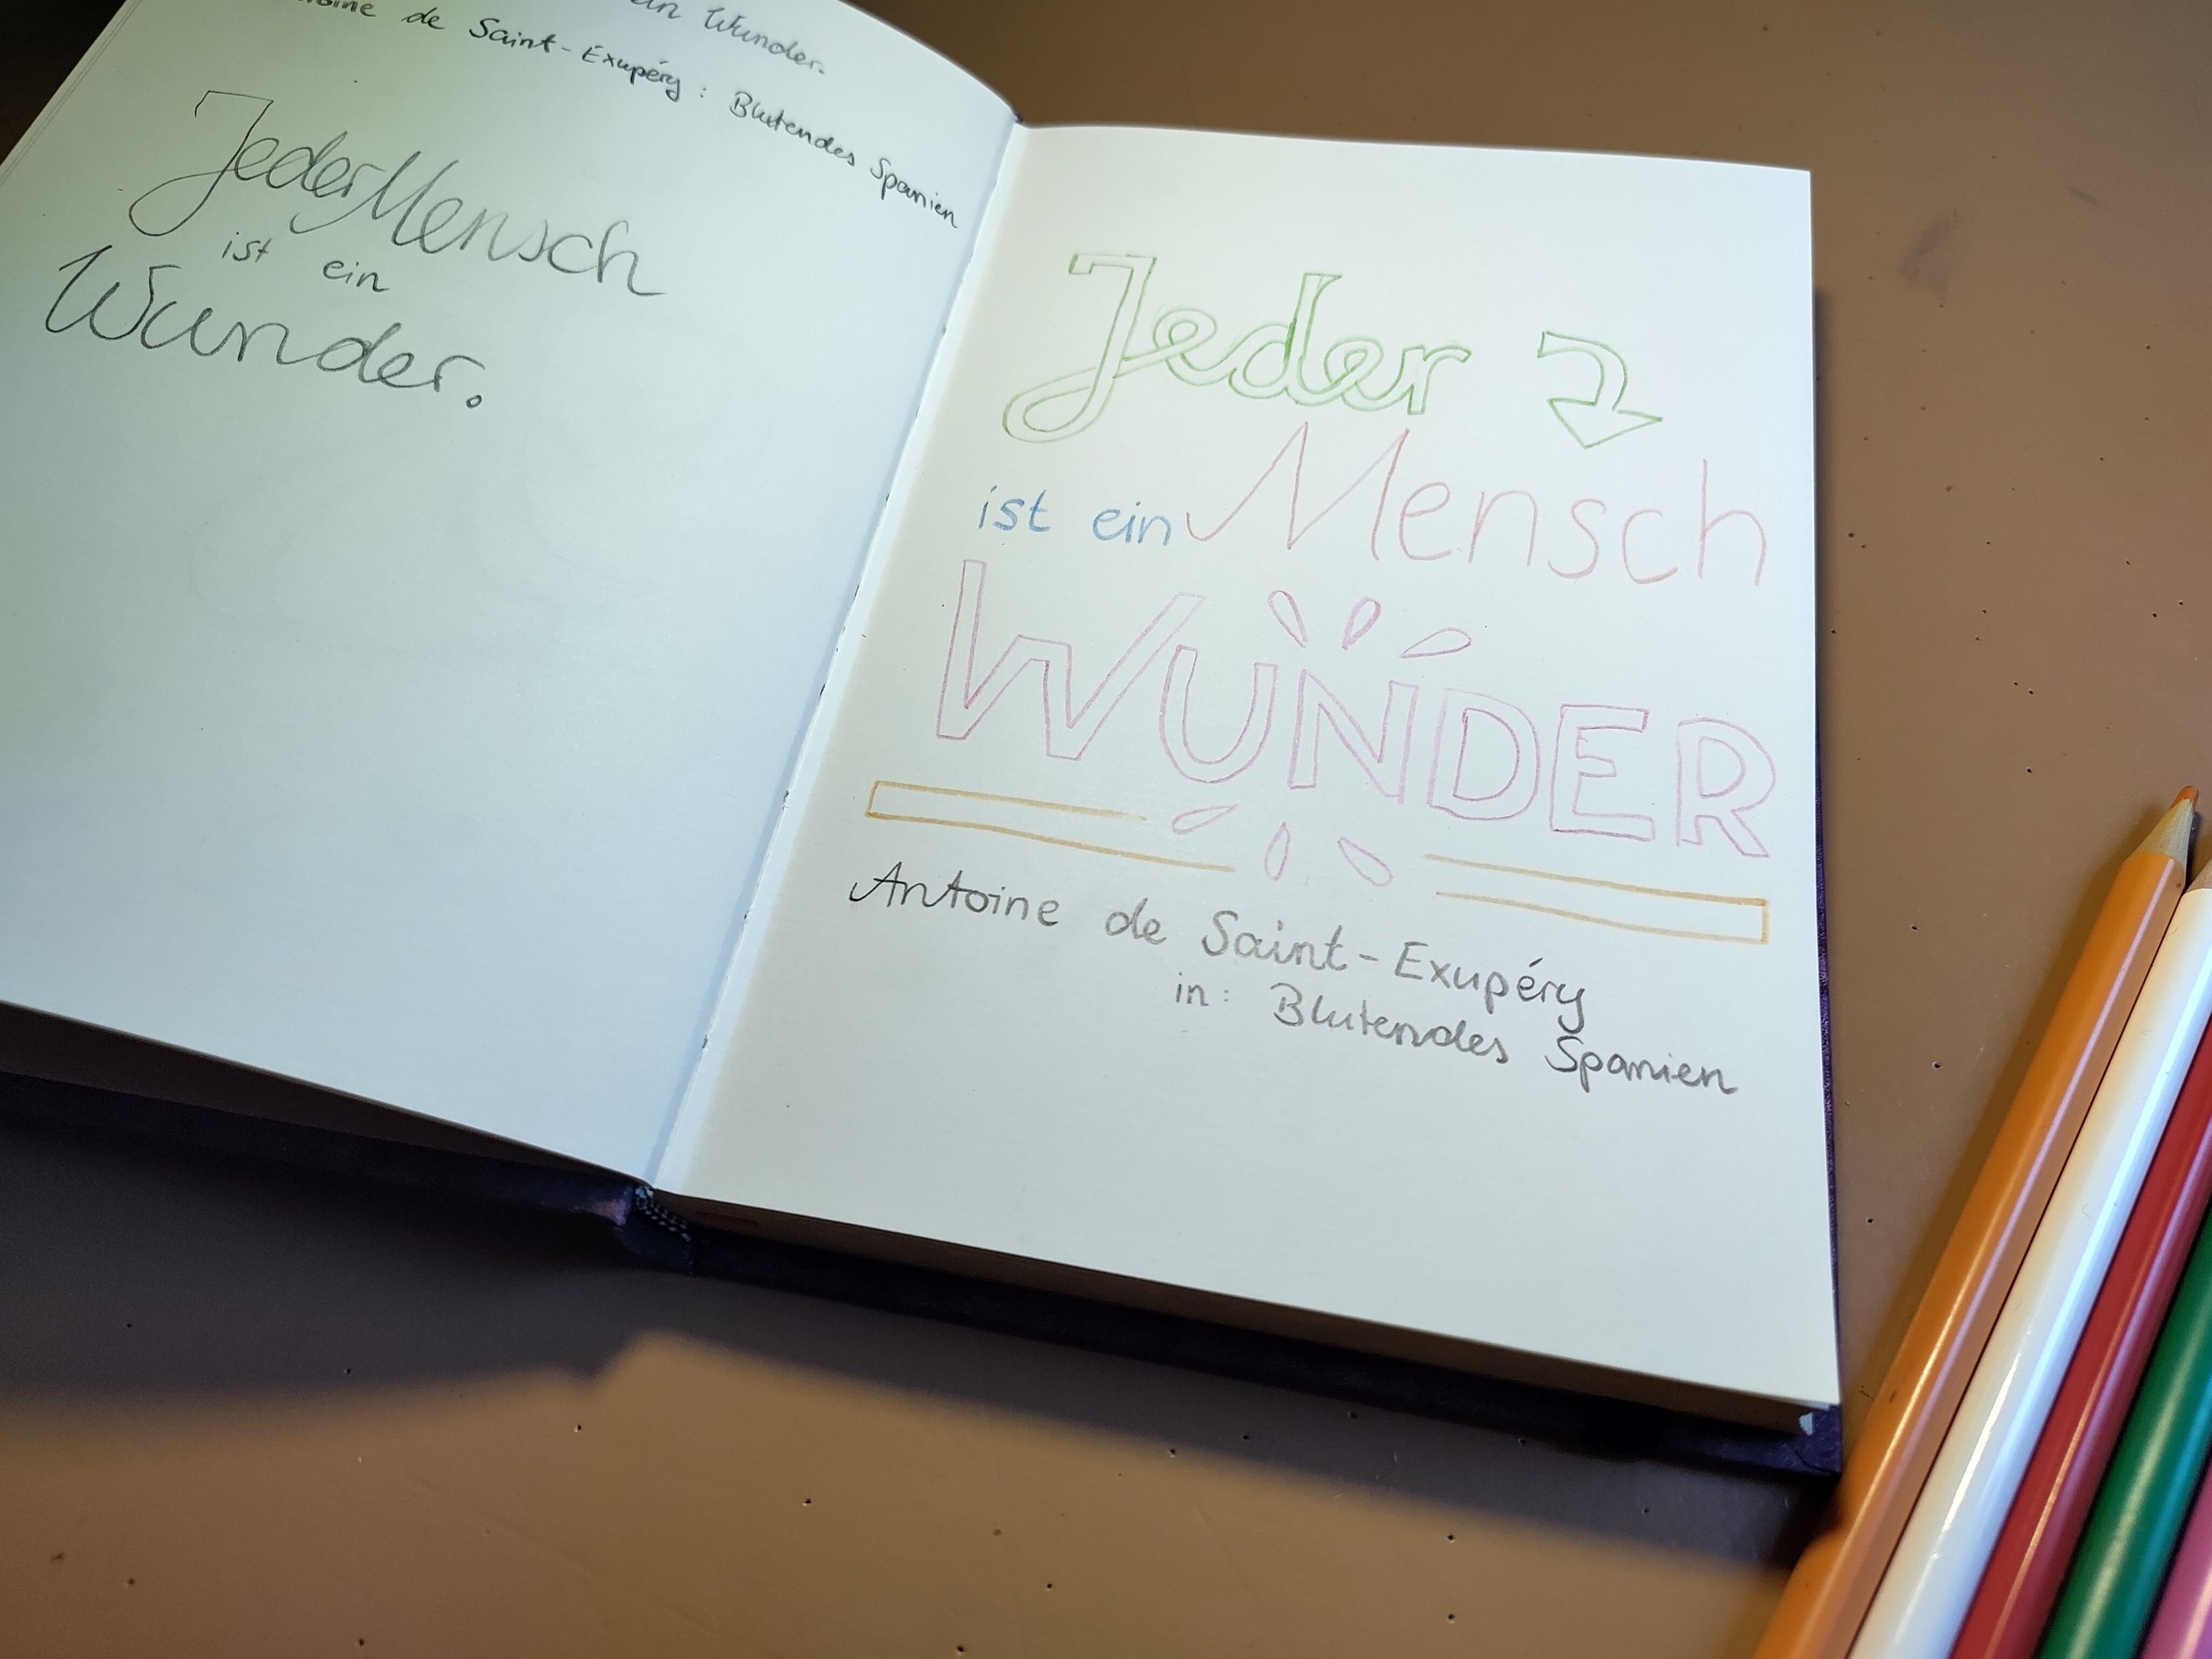 ein Wunder.
de Saint-Exupéry: Blutendes Spanien
Jeder Mensch
ist ein
Wunder.
Jeder
Mensch
ist ein
WUNDER
Antoine de Saint-Exupéry
in: Blutendes Spanien